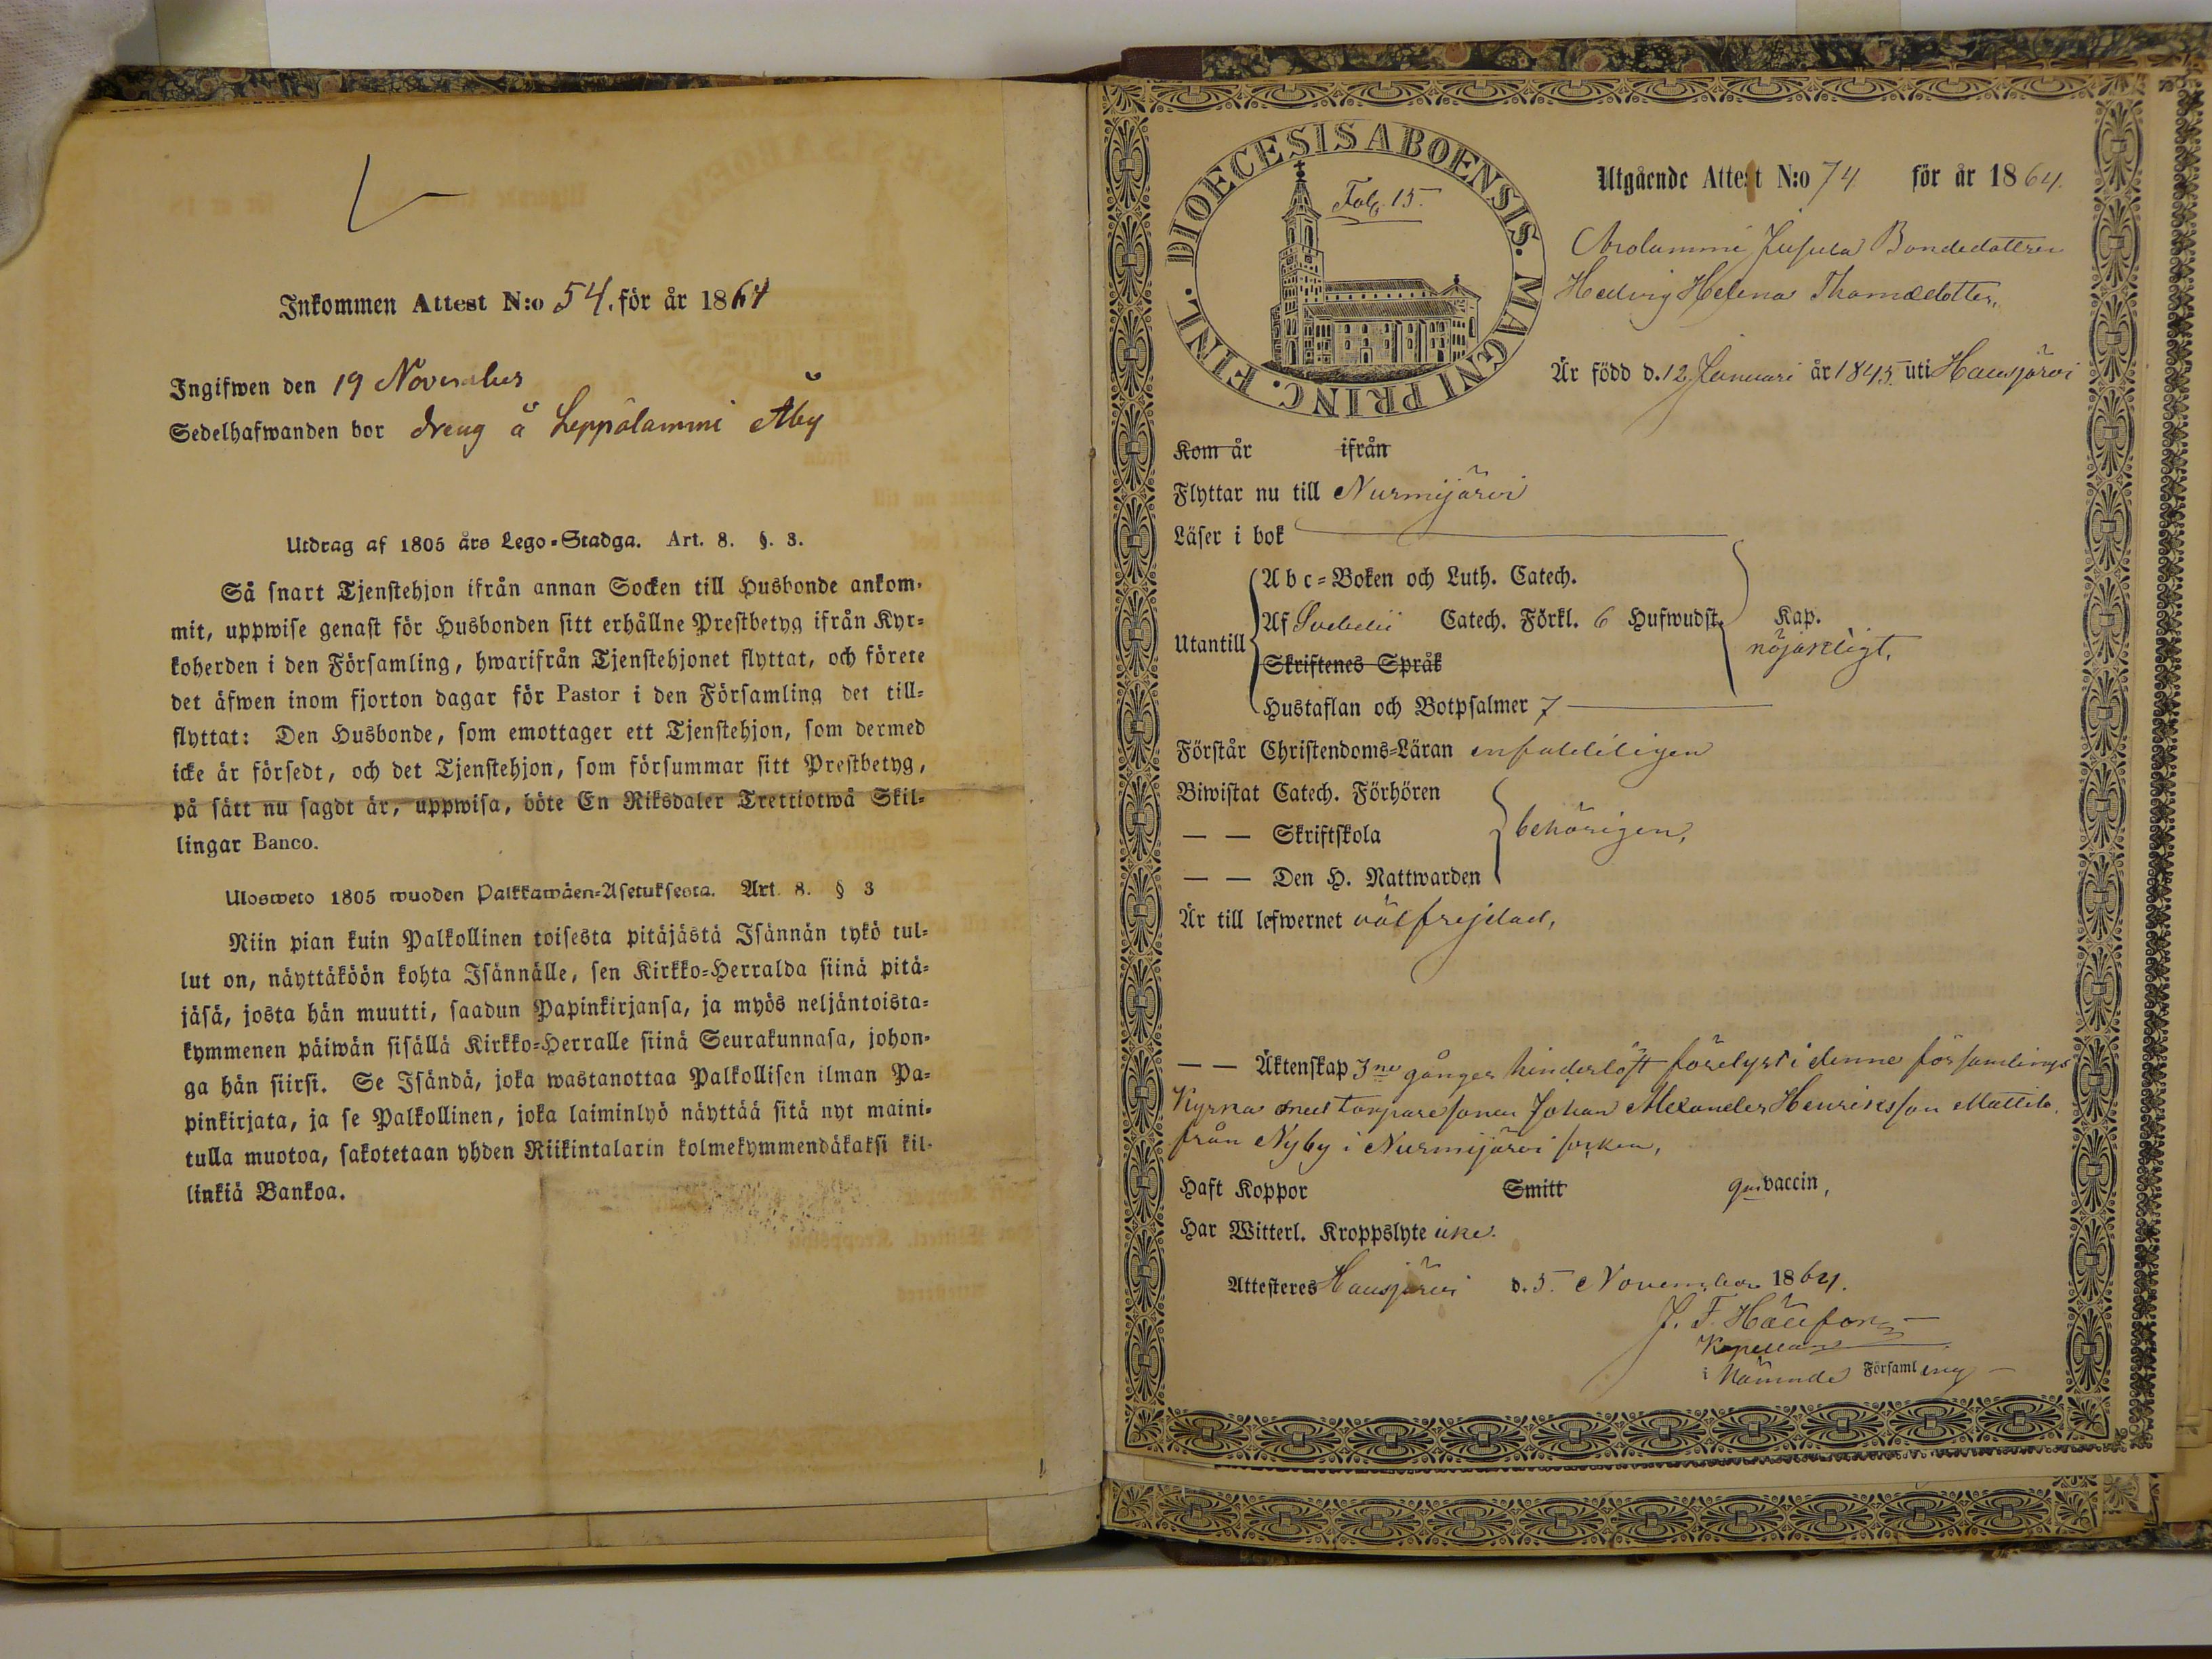 Inkommen Attest N:o 54. för år 1864
Ingifwen den 19 November
Sedelhafwanden bor dreng å Leppälammi Åby
Utdrag af 1805 års Lego-Stadga. Art. 8. §. 3.
Så snart Tjenstehjon ifrån annan Socken till Husbonde ankom-
mit, uppwise genast för Husbonden sitt erhållne Prestbetyg ifrån Kyr-
koherden i den Församling, hwarifrån Tjenstehjonet flyttat, och förete
det äfwen inom fjorton dagar för Pastor i den Församling det till-
flyttat: Den Husbonde, som emottager ett Tjenstehjon, som dermed
icke är försedt, och det Tjenstehjon, som försummar sitt Prestbetyg,
på sätt nu sagdt är, uppwisa, böte En Riksdaler Trettiotwå Skil-
lingar Banco.
Ulosweto 1805 wuoden Palkkawäen-Asetuksesta. Art. 8. § 3
Niin pian kuin Palkollinen toisesta pitäjästä Isännän tykö tul-
lut on, näyttäköön kohta Isännälle, sen Kirkko-Herralda siinä pitä-
jäsä, josta hän muutti, saadun Papinkirjansa, ja myös neljäntoista-
kymmenen päiwän sisällä Kirkko-Herralle siinä Seurakunnasa, johon-
ga hän siirsi. Se Isändä, joka wastanottaa Palkollisen ilman Pa-
pinkirjata, ja se Palkollinen, joka laiminlyö näyttää sitä nyt maini-
tulla muotoa, sakotetaan yhden Riikintalarin kolmekymmendäkaksi kil-
linkiä Bankoa.
DIOECESIS ABOENSIS. MAGNI PRINC. FINL.
Fol. 15.
Utgående Attest N:o 74 för år 1864.
Arolammi Jusula Bondedottren
Hedvig Helena Thomædotter,
Är född d. 12 Januari år 1845 uti Hausjärvi
Kom år ifrån
Flyttar nu till Nurmijärvi
Läser i bok
Utantill
Abc-Boken och Luth. Catech.
Af Svebelii Catech. Förkl. 6 Hufwudst. Kap.
Skriftenes Språk nöjaktligt.
Hustaflan och Botpsalmer 7
Förstår Christendoms-Läran enfaldeligen
Biwistat Catech. Förhören
— — Skriftskola behörigen,
— — Den H. Nattwarden
Är till lefwernet välfrejdad,
— — Äktenskap 3ne gånger hinderlöst förelyst i denne församlings
Kyrka med torparesonen Johan Alexander Henriksson Mattila
från Nyby i Nurmijärvi socken,
Haft Koppor Smitt gm vaccin,
Har Witterl. Kroppslyte icke.
Attesteres Hausjärvi d. 5 November 1864.
J. F.
Kapellan
i Nämnde Församling